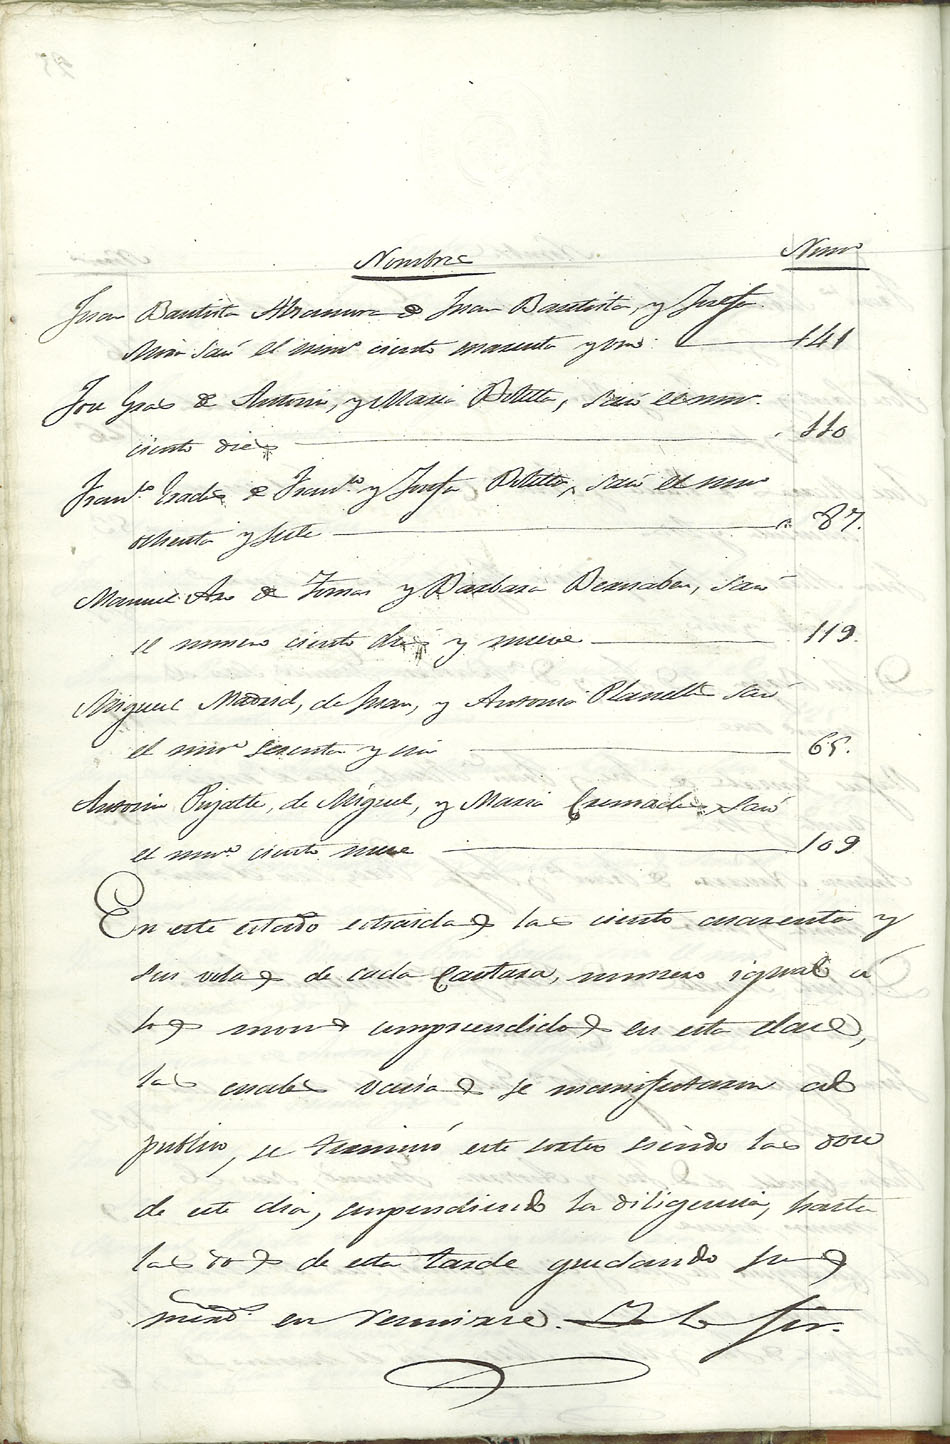 Nombres Num.º
Juan Bautista Miramira de Juan Bautista, y Josefa
Mira Sacó el num.º ciento cuarenta y uno. 141
José Gras de Antonio, y Maria Beltila, Sacó el num.º
ciento diez 110
Fran.co Grades de Fran.co y Josefa Beltila, Sacó el num.º
ochenta y siete 87.
Manuel Aro de Tomas y Barbara Bernabeu, Sacó
el numero ciento diez y nueve 119.
Miguel Madrid, de Juan, y Antonia Planelles Sacó
el num.º sesenta y
Antonio Rizatte, de Miguel, y Maria Cremades, Sacó
el num.º ciento nueve 109
En este estado estraidas las ciento cuarenta y
seis bolas de cada Cantara, numero igual á
los mozos comprendidos en esta clase,
las cuales vacias se manifestaron al
publico, se terminó este sorteo siendo las doce
de este dia, suspendiendo la diligencia, hasta
las dos de esta tarde quedando sus
mrds. en reunirse.